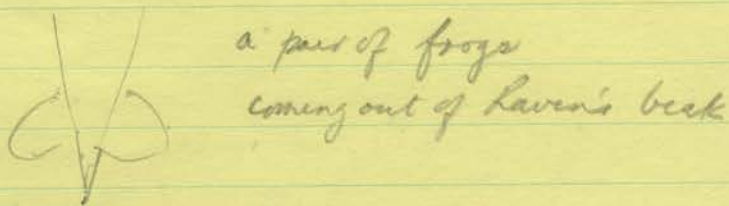 a pair of frogs
coming out of Raven's beak